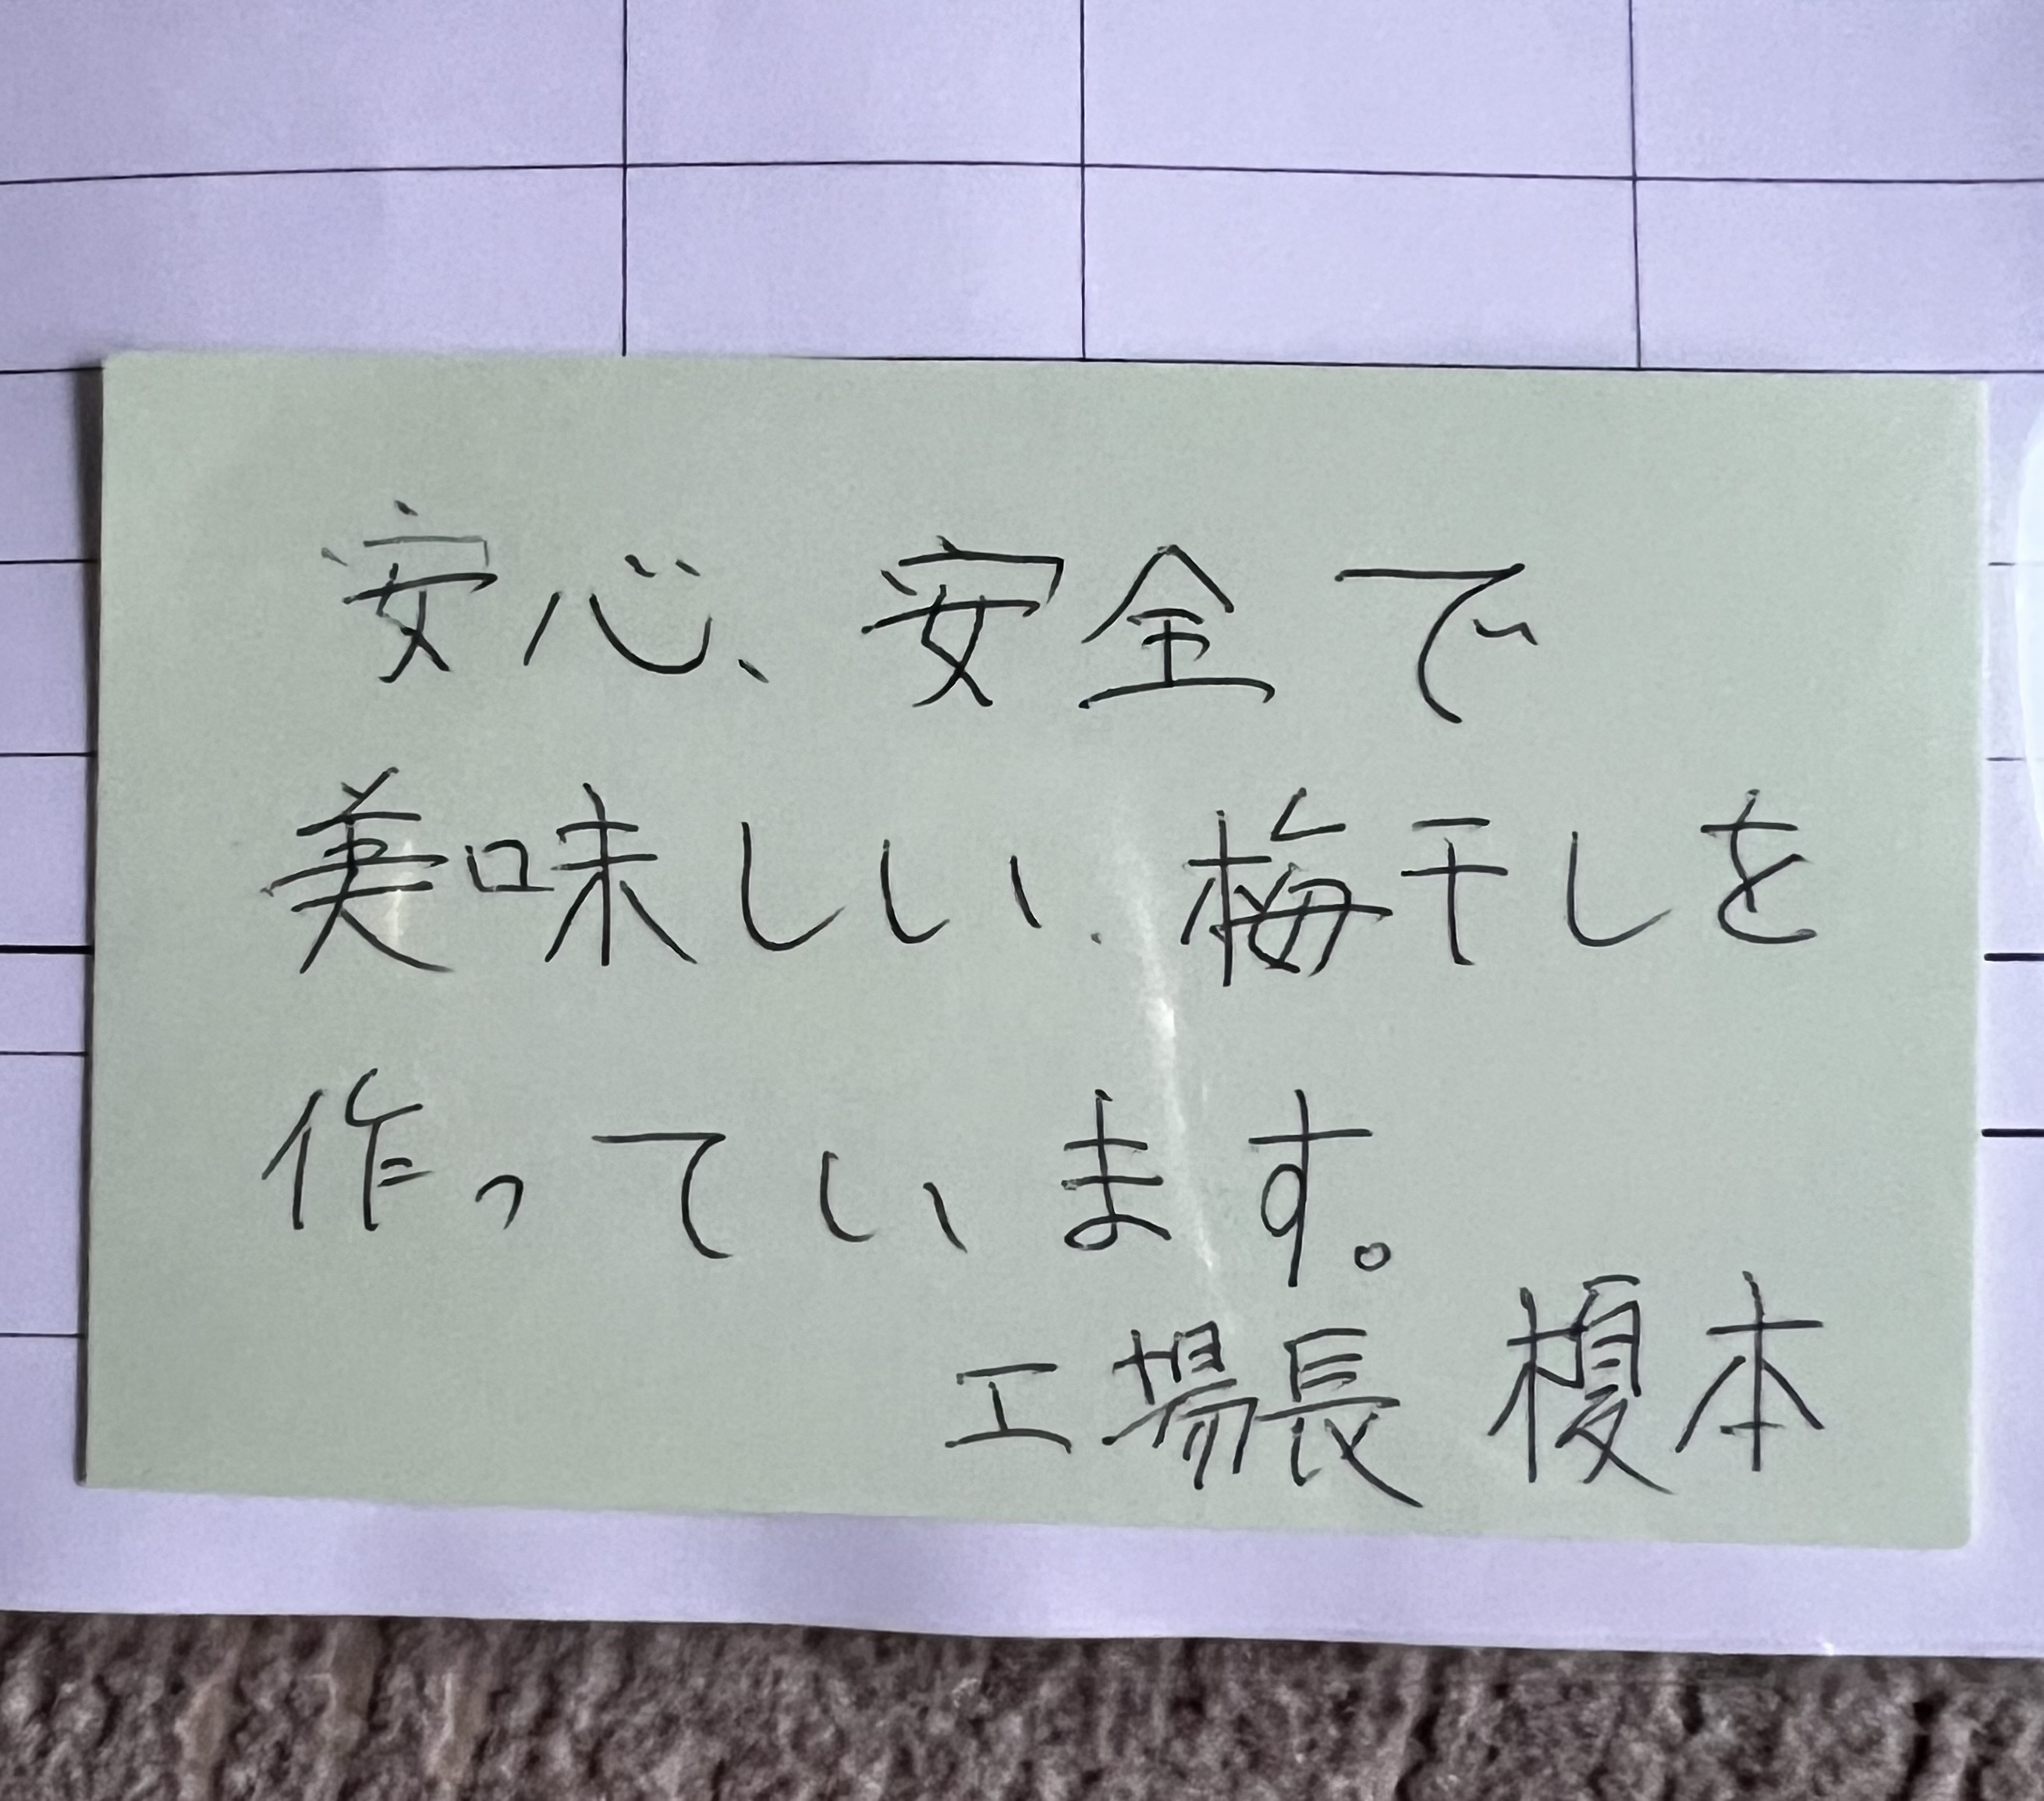 安心、安全で
美味しい梅干しを
作っています。
工場長 榎本